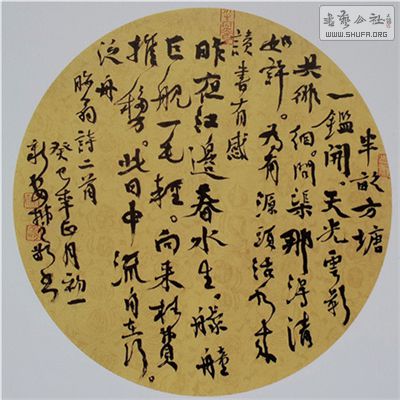 書藝公社
WWW.SHUFA.ORG
半畝方塘
一鑑開。天光雲影
共徘徊。問渠那得清
如許。為有源頭活水来
讀書有感
昨夜江邊春水生。艨艟
巨艦一毛輕。向来枉費
推移力。此日中流自在行。
泛舟
晦翁詩二首
癸巳年正月初一